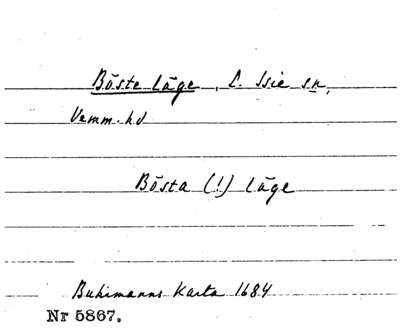 Böste läge, L. Isie sn,
Vemm. hd
Bösta (!) läge
Buhrmanns Karta 1684
Nr 5867.